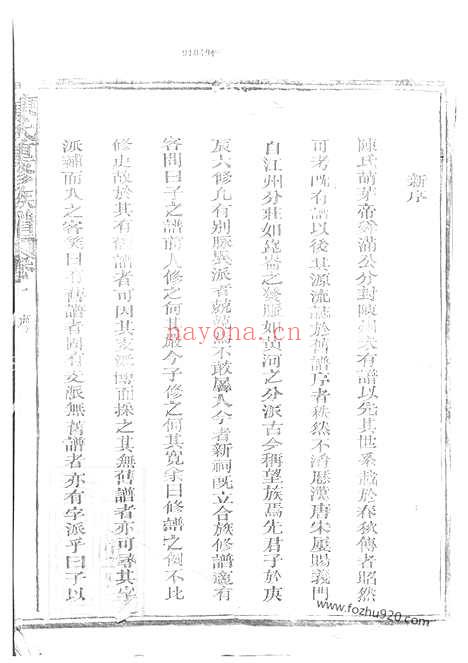 新序
陳氏萌芽帝舜滿公分封陳國未有譜以先其世系載於春秋傳者昭然
可考既有譜以後其源流誌於舊譜序者秩然不淆歷漢唐宋屢賜義門
自江州分莊如崑崙之發脈如黃河之分派古今稱望族焉先君子於庚
辰六修凡有別脈異派者兢兢然不敢屬入今者新祠既立合族修譜適有
客問曰子之譜前人修之何其嚴今子修之何其寬余曰修譜之例不比
修史故於其有舊譜者可因其支派博而採之其無舊譜者亦可尋其字
派補而入之客笑曰有舊譜者固有支派無舊譜者亦有字派乎曰子以
陳氏重修族譜
nayona.cn
www.fozhu920.com